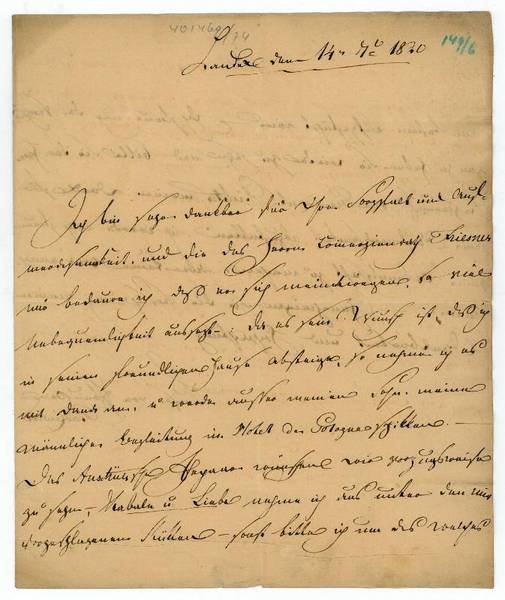 401469/74
149/6
Landek den 14n 7b 1820
Ich bin sehr dankbar für Ihre Sorgfalt und Auf-
merksamkeit, und die des Herrn Commerzienrath
nur bedaure ich daß er sich meinetwegen, so viel
Unbequemlichkeit aussetzt; da es sein Wunsch ist, daß ich
in seinem freundlichen Hause absteige, so nehme ich es
mit Dank an, u werde ausser meinem Sohn, meine
männliche Begleitung in Hotel de Pologne schikken. —
Das Stück wünschen wir vorzugsweise
zu sehn, — Kabale u Liebe nehme ich aus unter den mir
vorgeschlagenen Stükken — sonst bitte ich um das welches